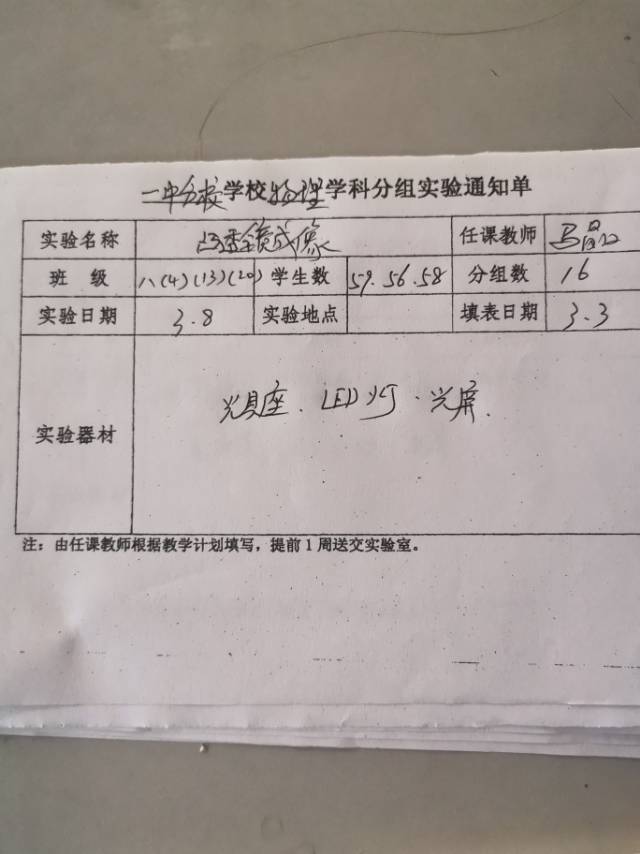 一中分校学校物理学科分组实验通知单
实验名称 凸透镜成像 任课教师 马
班 级 八(4)(13)(20) 学生数 59.56.58 分组数 16
实验日期 3.8 实验地点 填表日期 3.3
实验器材 光具座. LED灯. 光屏.
注：由任课教师根据教学计划填写，提前1周送交实验室。